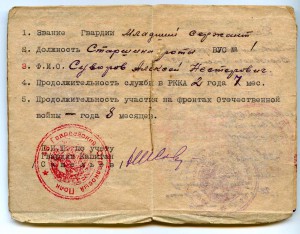 1. Звание Гвардии Младший сержант
2. Должность Старшина роты ВУС № 1
3. Ф.И.О. Суворов Алексей Нестерович
4. Продолжительность службы в РККА 2 года 7 мес.
5. Продолжительность участия на фронтах Отечественной
войны — года 8 месяцев.
по учету
Гвардии Капитан